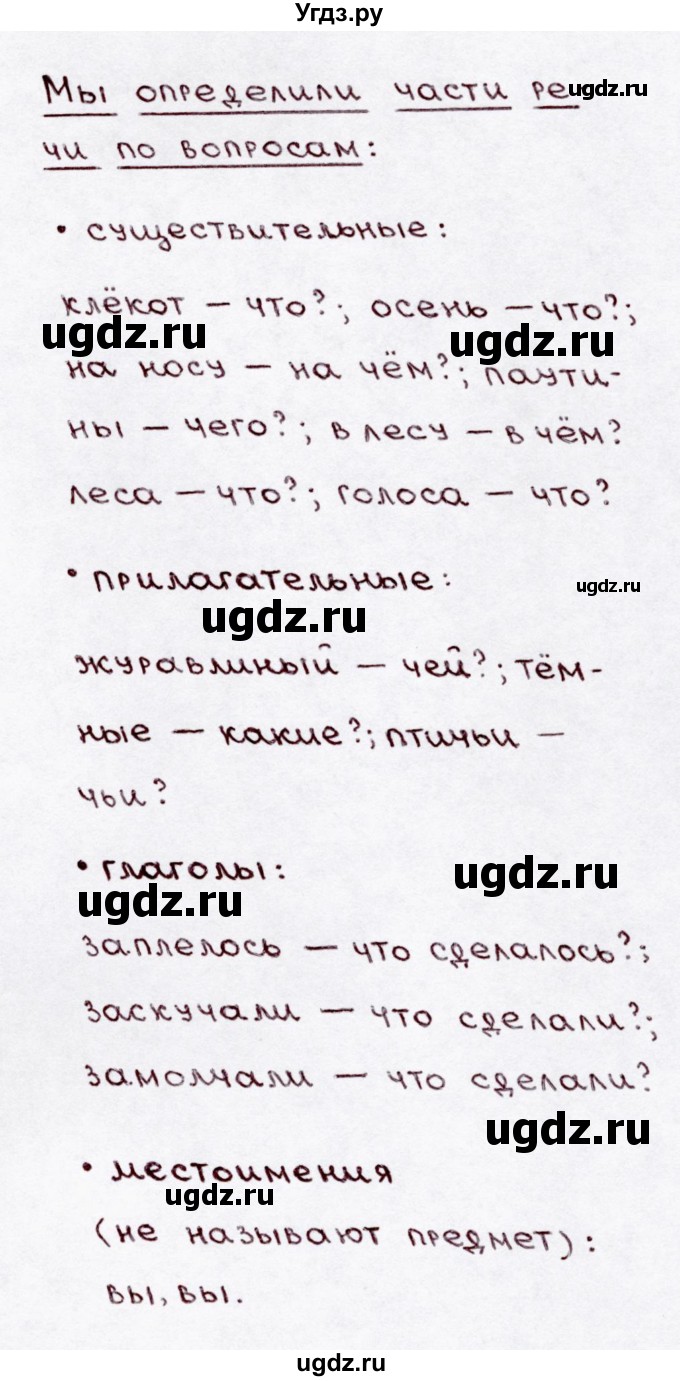 Угдз.ру
Мы определили части ре
ugdz.ru
чи по вопросам:
• существительные:
клёкот – что?; осень – что?;
ugdz.ru
ugdz.ru
на носу – на чём?; паути-
ны – чего?; в лесу – в чём?
леса – что?; голоса – что?
• прилагательные:
ugdz.ru
ugdz.ru
журавлиный – чей?; тём-
ные – какие?; птичьи –
чьи?
• глаголы:
ugdz.ru
ugdz.ru
заплелось – что сделалось?;
заскучали – что сделали?;
замолчали – что сделали?
ugdz.ru
• местоимения
ugdz.ru
(не называют предмет):
вы, вы.
ugdz.ru